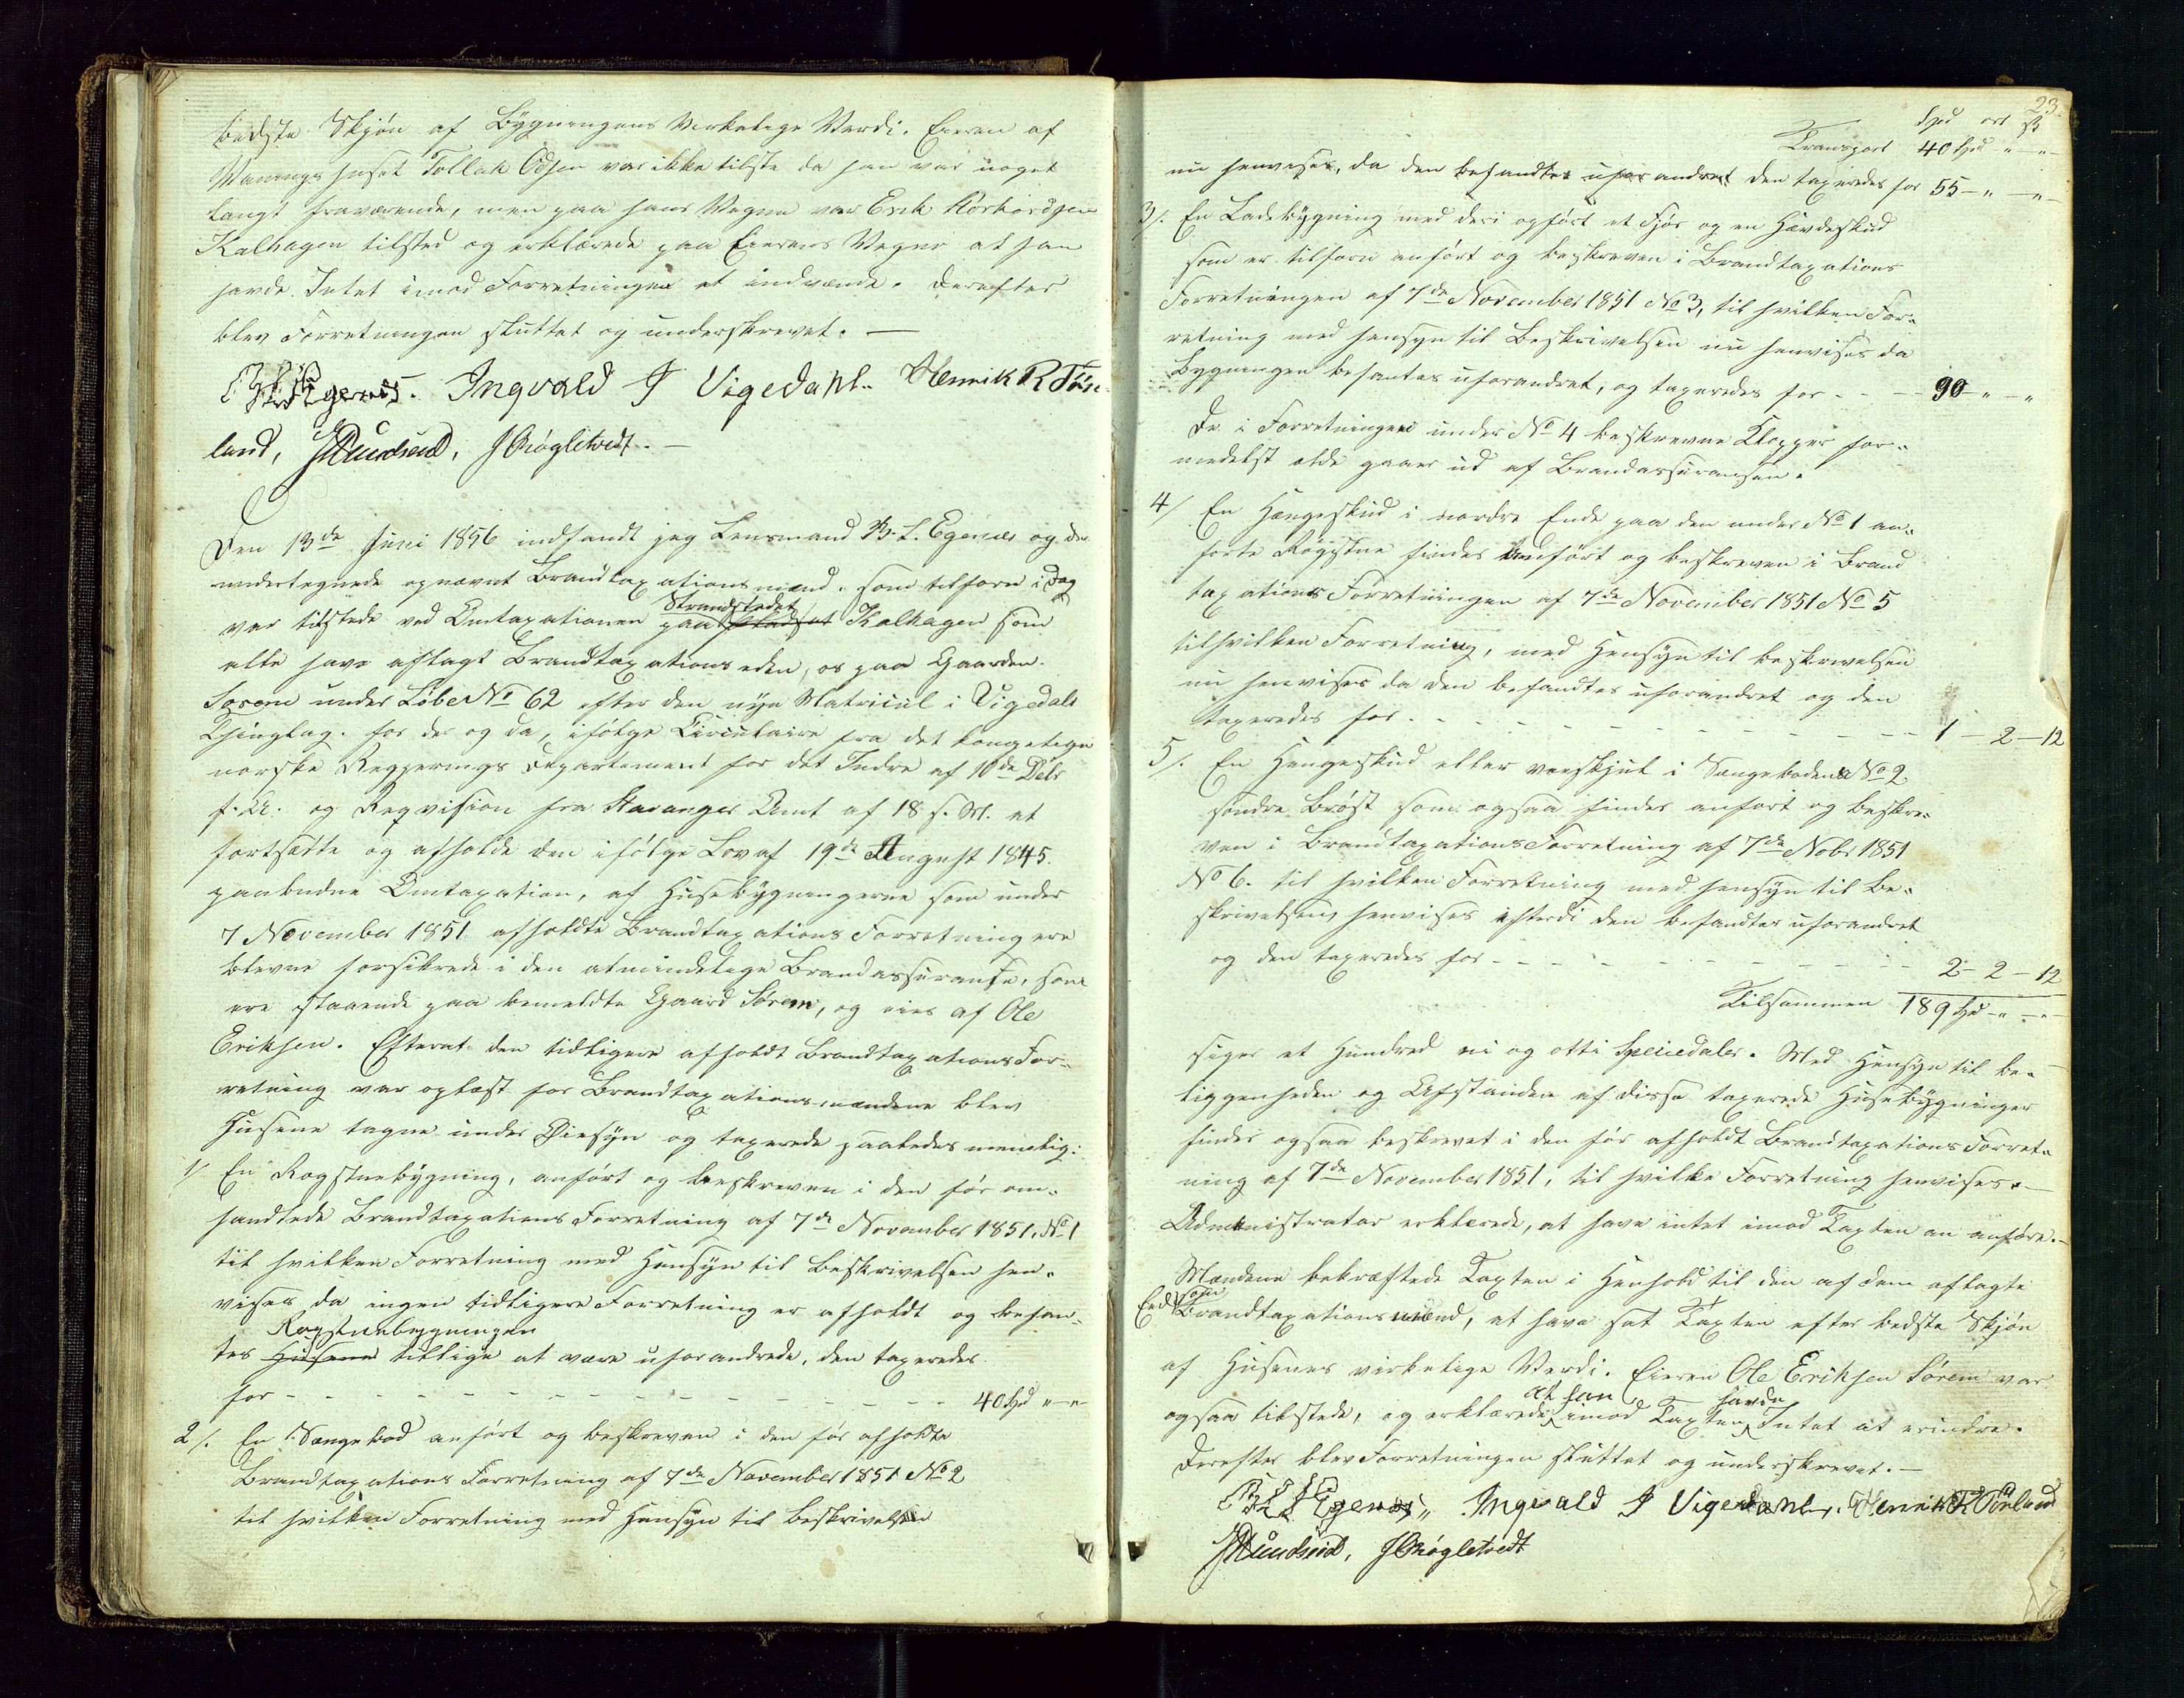 bedste Skjøn af Bygningens Virkelige Værdi. Eieren af
Vaaningshuset Tollak Odsen var ikke tilste da han var noget
langt fraværende, men paa hans Vegne var Erik
Kalhagen tilsted og erklærede paa Eierens Vegne at han
havde Intet imod Forretningen at indvænde. Derefter
blev Forretningen sluttet og underskrevet. —
B L Egenes. Ingvald J Vigedahl. Henrik R Tøn-
land, J Knudsen, J Øvregletvedt. —
Den 13de Juni 1856 indfandt jeg Lensmand B. L. Egenæs og de
undertegnede opnævnt Brandtaxationsmænd, som tilforn i Dag
var tilstede ved Omtaxationen paa Strandstedet Kalhagen som
alle have aflagt Brandtaxationseden, os paa Gaarden
Sørem under Løbe No 62 efter den nye Matricul i Vigedals
Thinglag. for der og da, ifølge Circulaire fra det kongelige
norske Regjerings Departement for det Indre af 10de Debr
f. A. og Reqvisition fra Stavanger Amt af 18 s. M. at
fortsætte og afholde den ifølge Lov af 19de August 1845.
paabudne Omtaxation, af Husebygningerne som under
7 November 1851 afholdte Brandtaxations Forretning ere
blevne forsikrede i den almindelige Brandassurance, som
ere staaende paa bemeldte Gaard Sørem, og eies af Ole
Eriksen. Efterat den tidligere afholdt Brandtaxations For-
retning var oplæst for Brandtaxationsmændene blev
Husene tagne under Øiesyn og taxerede saaledes nemlig:
1/ En Rogstuebygning, anført og beskreven i den før om-
handlede Brandtaxations Forretning af 7de November 1851. No 1
til hvilken Forretning med Hensyn til Beskrivelsen hen-
vises, da ingen tidligere Forretning er afholdt og befan-
Rogstuebygningen
tes Husene tillige at være uforandrede, den taxeredes
for - - - - - - - - - - - - - - - 40 Spd " - "
2/. En Sængebod anført og beskreven i den før afholdte
Brandtaxations Forretning af 7de November 1851 No 2
til hvilken Forretning med Hensyn til Beskrivelsen
23.
Spd ort ß
Transport 40 Spd " — " —
nu henvises, da den befandtes uforandret den taxeredes for 55 — " — " —
3/. En Ladebygning med deri opført et Fjøs og en Hævdeskud
som er tilforn anført og beskreven i Brandtaxations
Forretningen af 7de November 1851 No 3, til hvilken For-
retning med Hensyn til Beskrivelsen nu henvises da
Bygningen befantes uforandret, og taxeredes for - - - 90 — " — "
De i Forretningen under No 4 beskrevne Klopper for-
medelst ælde gaaer ud af Brandassurancen.
4/ En Hængeskud i nordre Ende paa den under No 1 an-
førte Røgstue findes anført og beskreven i Brand
taxations Forretningen af 7de November 1851 No 5
til hvilken Forretning, med Hensyn til beskrivelsen
nu henvises da den befandtes uforandret og den
taxeredes for - - - - - - - - - - - - 1 — 2 — 12
5/. En Hengeskud eller vedskjul i Sængebodens No 2.
søndre Brøst som ogsaa findes anført og beskre-
ven i Brandtaxations Forretning af 7de Nobr 1851
No 6. til hvilken Forretning med Hensyn til Be-
skrivelsen henvises efterdi den befandtes uforandret
og den taxeredes for - - - - - - - - - - 2 — 2 — 12
Tilsammen 189 Spd — " — " —
siger et Hundred ni og otti Speciedaler. Med Hensyn til be-
liggenheden og Afstanden af disse taxerede Husebygninger
findes ogsaa beskrevet i den før afholdt Brandtaxations Forret-
ning af 7de November 1851, til hvilke Forretning henvises. —
Administrator erklærede, at have intet imod Taxten an anføre. —
Mændene bekræftede Taxten i Henhold til den af dem aflagte
Eed som Brandtaxationsmænd, at have sat Taxten efter bedste Skjøn
af Husenes virkelige Værdi. Eieren Ole Eriksen Sørem var
at han havde
ogsaa tilstede, og erklærede imod Taxten Intet at erindre.
Derefter blev Forretningen sluttet og underskrevet. —
B L Egenæs, Ingvald J Vigedahl, Henrik R Tønland
J Knudsen, J Øvregletvedt